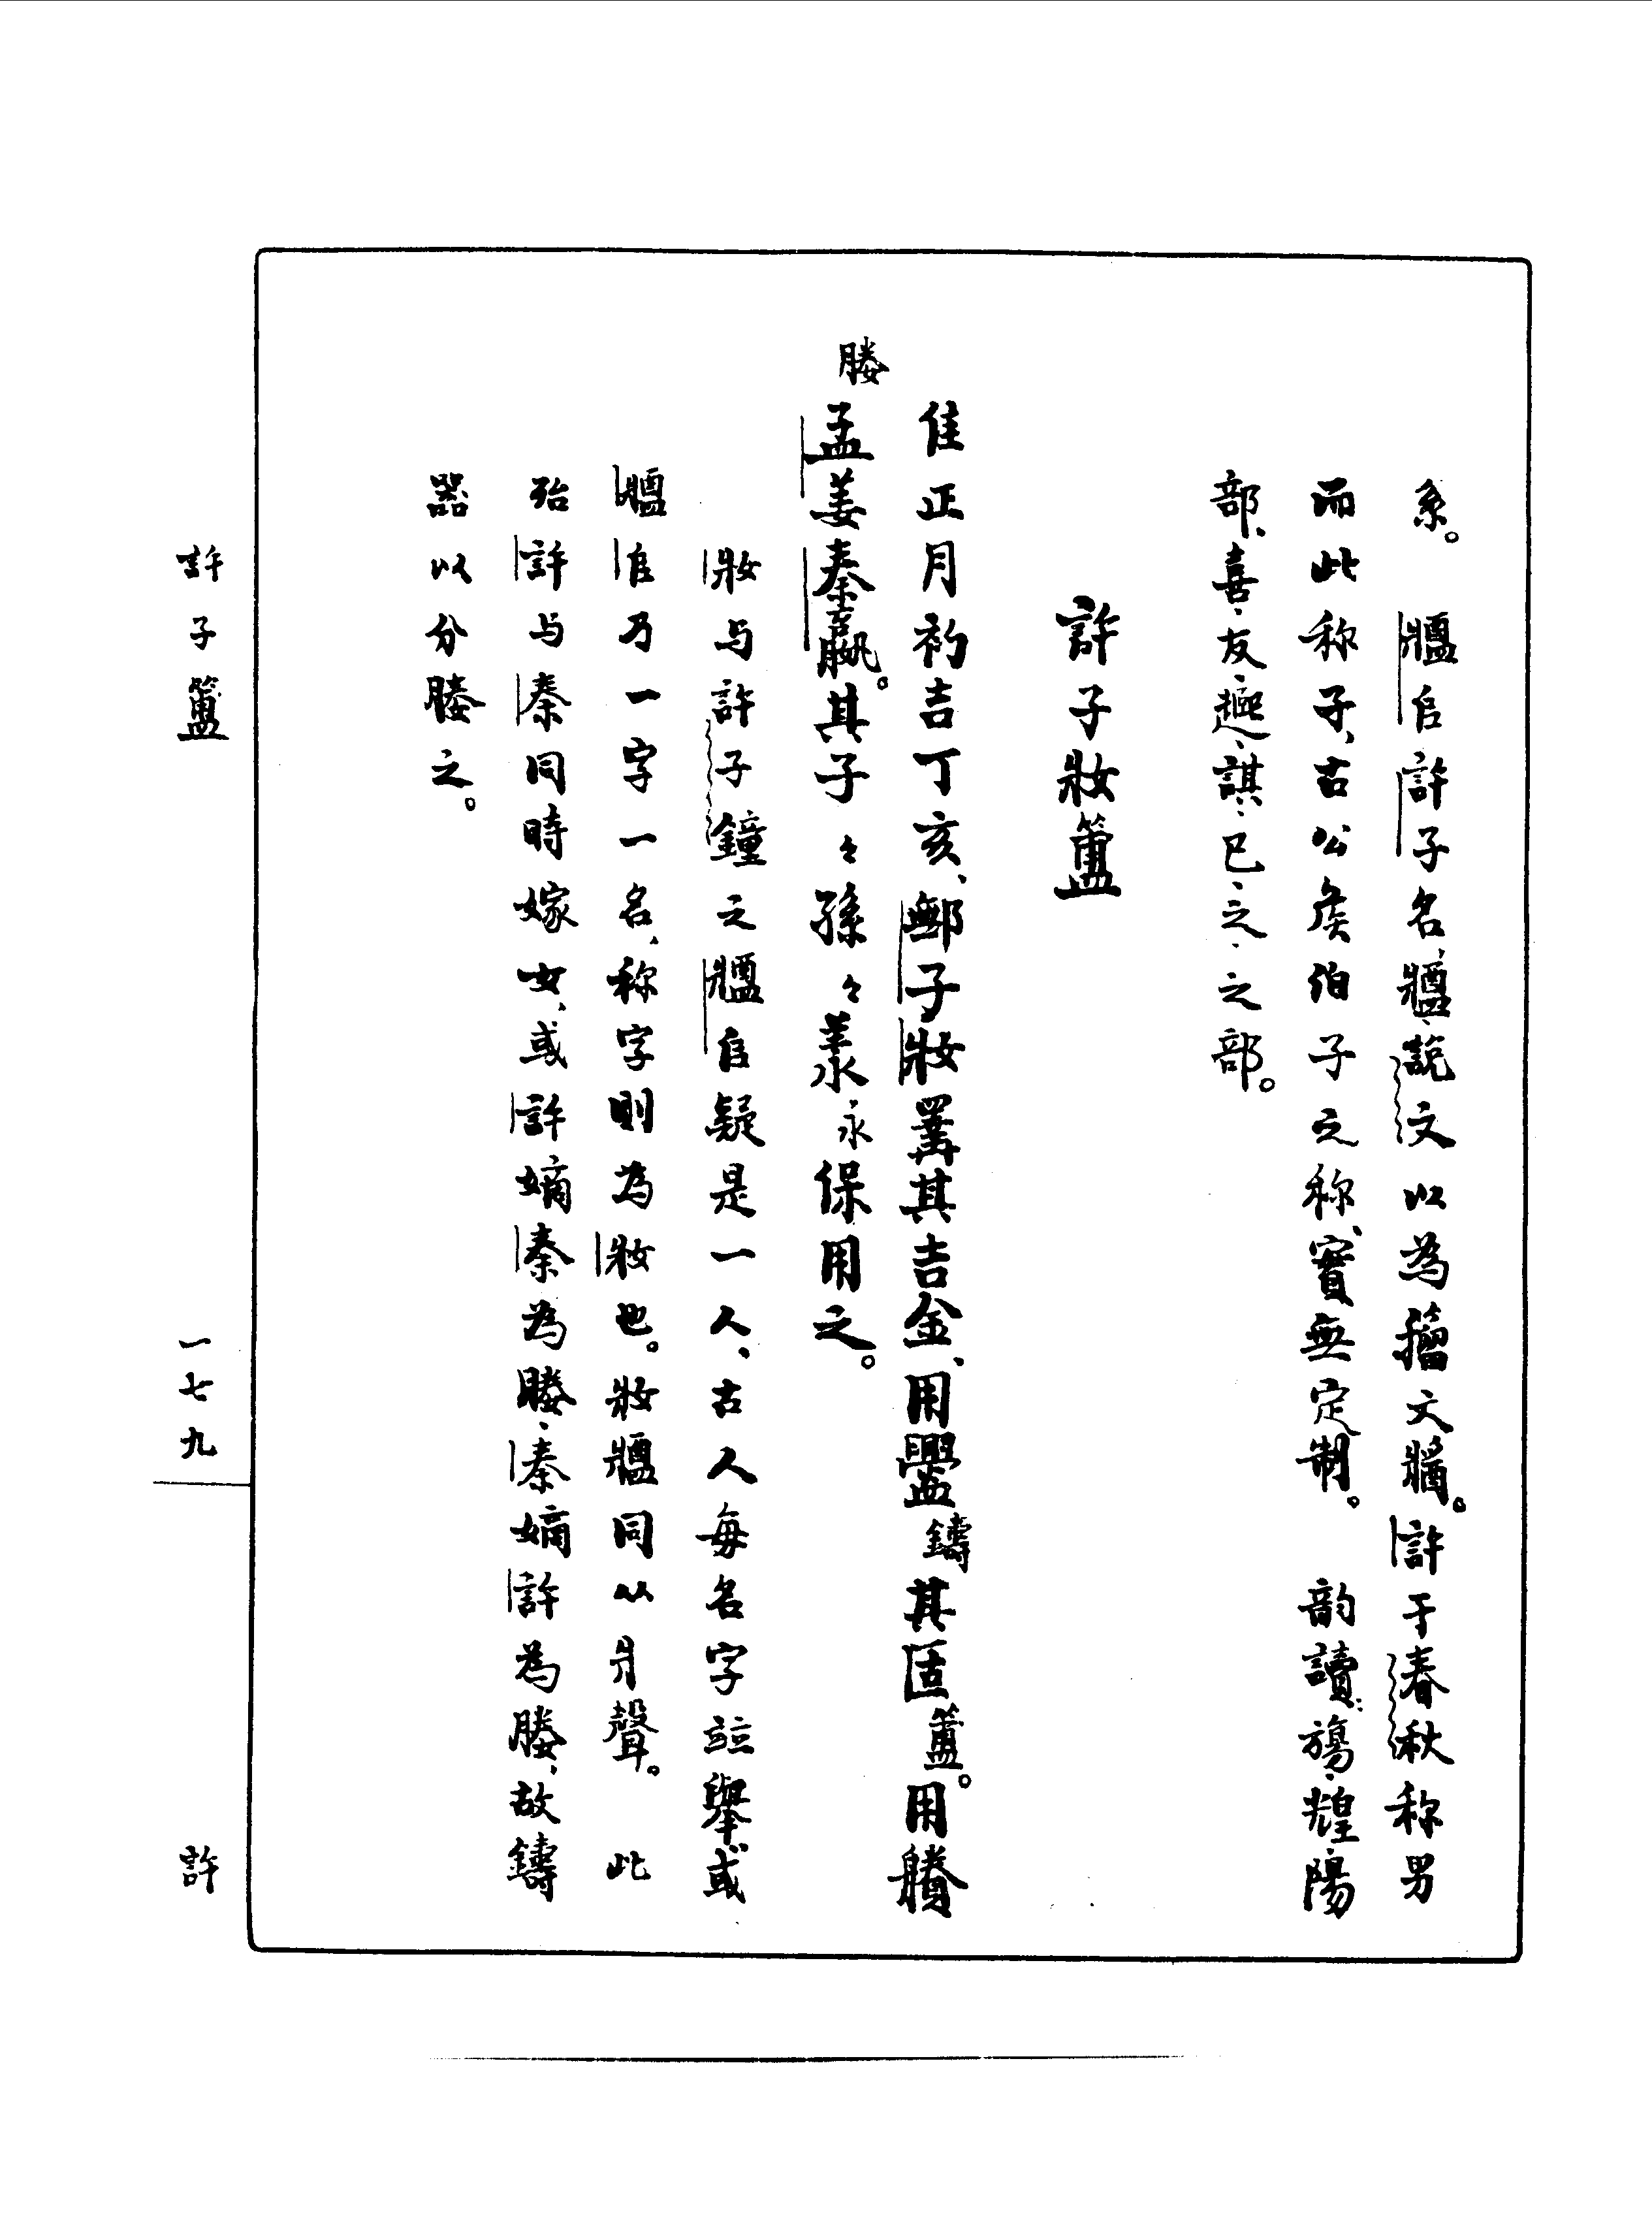 系。 𤖕𠂤許子名，𤖕，說文以為籀文牆。許于春秋称男
而此称子，古公矦伯子之称，實無定制。 韵讀：旸、煌、陽
部，喜、友、趩、諆、已、之、之部。
許子妝簠
隹正月初吉丁亥，鄦子妝擇其吉金，用鑄其匤簠。用賸
媵孟姜秦嬴。其子〻孫〻羕永保用之。
妝与許子鐘之𤖕𠂤疑是一人，古人每名字竝舉，或
𤖕𠂤乃一字一名，称字則為妝也。妝𤖕同从爿聲。 此
殆許与秦同時嫁女，或許嫡秦為媵，秦嫡許為媵，故鑄
器以分媵之。
許子簠 一七九 許